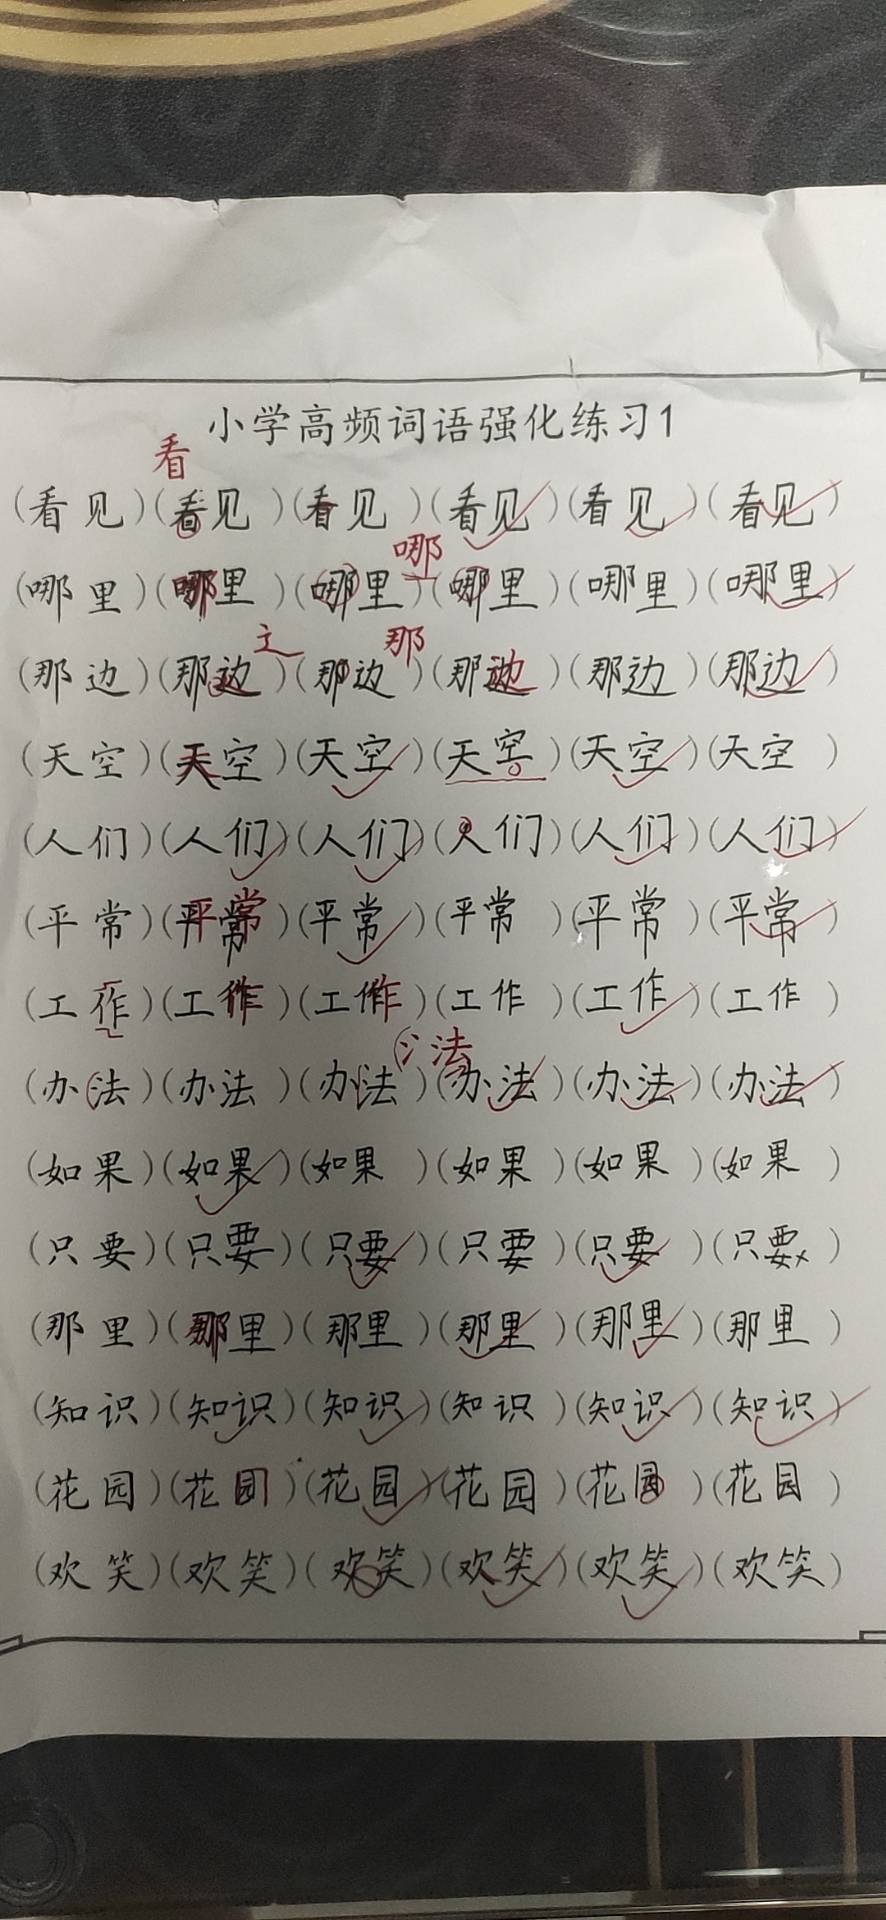 小学高频词语强化练习1
看
(看见)(看见)(看见)(看见)(看见)(看见)
哪
(哪里)(哪里)(哪里)(哪里)(哪里)(哪里)
辶 那
(那边)(那边)(那边)(那边)(那边)(那边)
(天空)(天空)(天空)(天空)(天空)(天空)
(人们)(人们)(人们)(人们)(人们)(人们)
(平常)(平常)(平常)(平常)(平常)(平常)
(工作)(工作)(工作)(工作)(工作)(工作)
氵法
(办法)(办法)(办法)(办法)(办法)(办法)
(如果)(如果)(如果)(如果)(如果)(如果)
(只要)(只要)(只要)(只要)(只要)(只要)
(那里)(那里)(那里)(那里)(那里)(那里)
(知识)(知识)(知识)(知识)(知识)(知识)
(花园)(花园)(花园)(花园)(花园)(花园)
(欢笑)(欢笑)(欢笑)(欢笑)(欢笑)(欢笑)